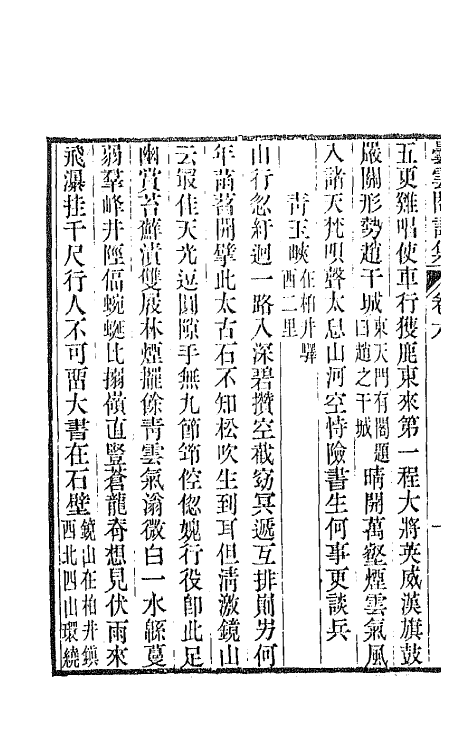 曇雲閣詩集 卷六 一
五更雞唱使車行獲鹿東來第一程大將英威漢旗鼓
嚴關形勢趙干城東天門有閣題曰趙之干城晴開萬壑煙雲氣風
入諸天梵唄聲太息山河空恃險書生何事更談兵
青玉峽在柏井驛西二里
山行忽紆迴一路入深碧攢空截窈冥遞互排劃屴何
年菑蓄開擘此太古石不知松吹生到耳但淸激鏡山
云最佳天光逗圓隙手無九節筇倥偬婏行役卽此足
幽賞苔蘚漬雙屐林煙擢餘靑雲氣滃微白一水緜蔓
弱羣峰井陘偪蜿蜒比搦嶺直豎蒼龍脊想見伏雨來
飛瀑挂千尺行人不可畱大書在石壁鏡山在柏井鎭西北四山環繞